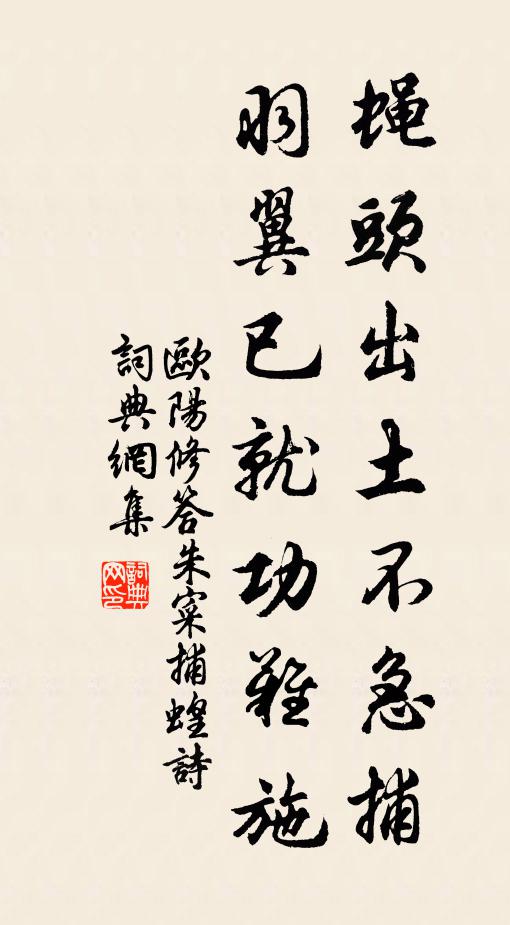 蝇頭出土不急捕
羽翼已就功難施
歐陽修答朱寀捕蝗詩
詞典網集
詞典网印